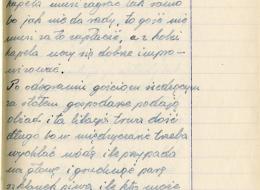 kapela musi zagrać tak samo
bo jak nie da rady, to gość nie
musi za to zapłacić, a z kolei
kapela musi się dobrze impro-
wizować.
Po odegraniu gościom siedzącym
za stołem gospodarze podają
obiad i ta biesiada trwa dość
długo bo w międzyczasie trzeba
wypić wódkę ile przypada
na głowę i parę
szklanek piwa ile kto może